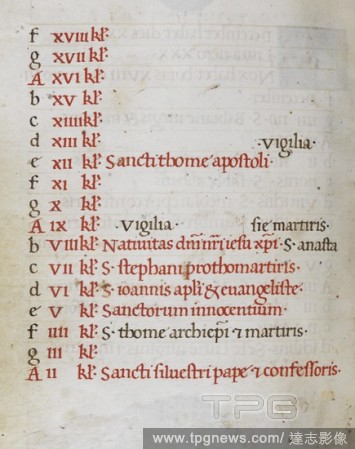 f xviii kl'
g xvii kl'
A xvi kl'
b xv kl'
c xiiii kl'
d xiii kl' · Vigilia ·
e xii kl' Sancti thome apostoli ·
f xi kl'
g x kl'
A ix kl' · Vigilia · sie martiris ·
b viii kl' Natiuitas dñi nr̃i iesu xp̃i · S · anasta
c vii kl' S · stephani prothomartiris ·
d vi kl' S · ioannis apl̃i & euangeliste ·
e v kl' Sanctorum innocentium ·
f iiii kl' S · thome archiep̃i ⁊ martiris ·
g iii kl'
A ii kl' Sancti siluestri pape ⁊ confessoris ·
TPG
www.tpgnews.com / 達志影像